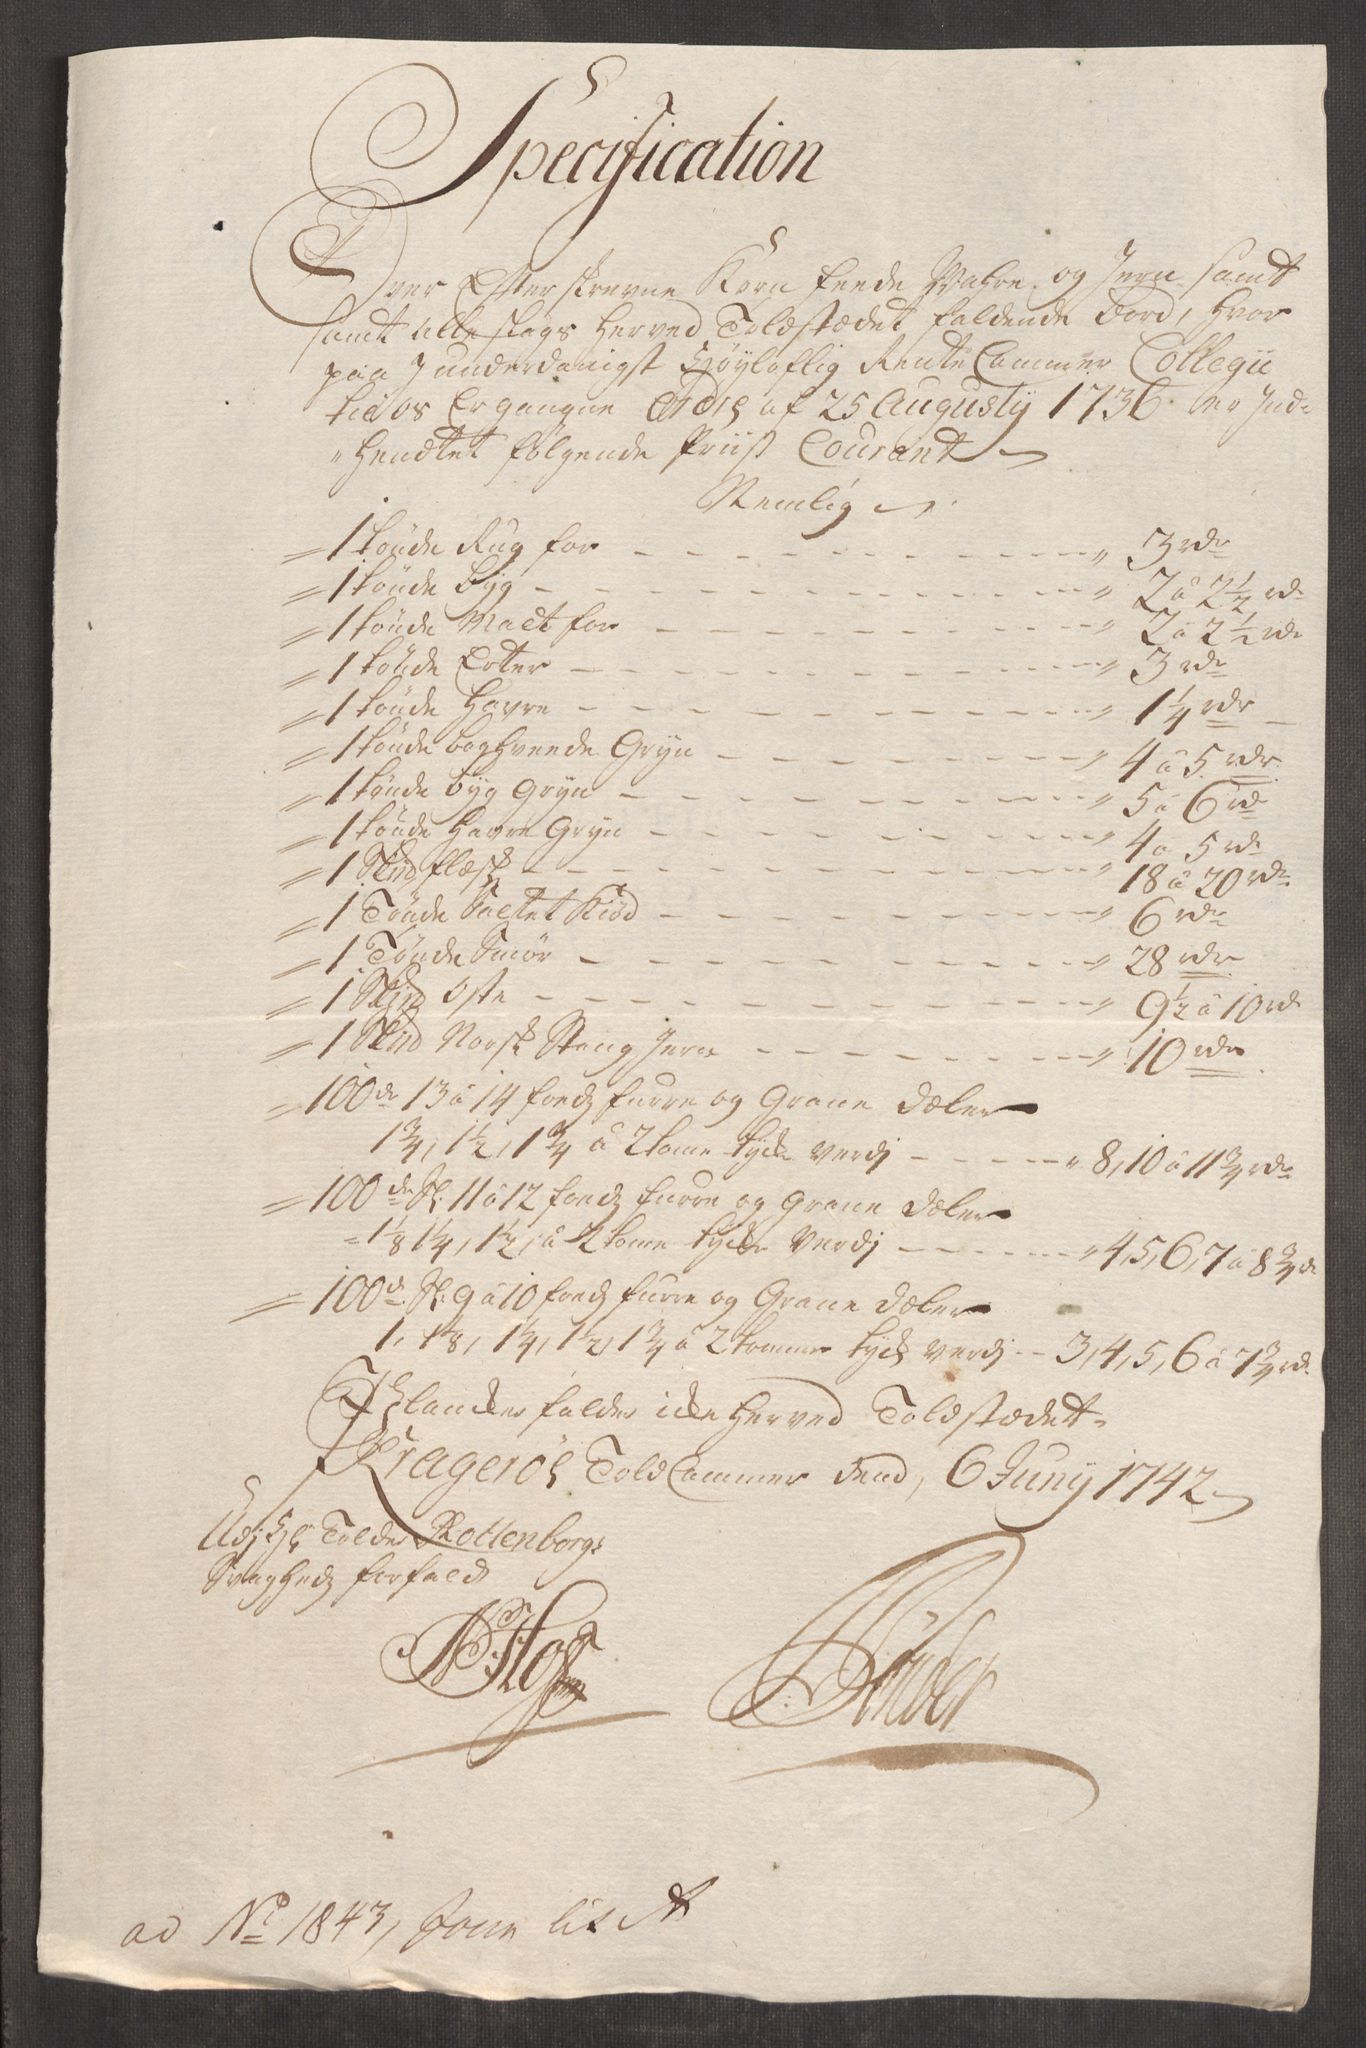 Specification
Over Efterskrevne Korn feede Wahre og Jern samt
samt alle slags herved Toldstædet faldende bord, hvor
paa J underdanigst Høyloflig Rente Cammer Collegii
til os Ergangne Ordre af 25 Augusty 1736 er Ind-
hendtet følgende Priis Courant
Nemlig
1 tønde Rug for 3 rdr
1 tønde byg 2 à 2 1/2 rd
1 tønde Malt for 2 à 2 1/2 rdr
1 tønde Erter 3 rdr
1 tønde Havre 1 1/4 rdr
1 tønde boghveede Gryn 4 à 5 rdr
1 tønde byg Gryn 5 à 6 rdr
1 tønde Havre Gryn 4 à 5 rdr
1 Skpd flesk 18 à 20 rdr
1 Tønde Saltet Kiød 6 rdr
1 Tønde Smør 28 rdr
1 Skpd Oste 9 1/2 à 10 rd
1 Skpd Norsk Stang Jern 10 rdr
100de 13 à 14 foeds furre og Grane dæler
1 1/4, 1 1/2, 1 3/4 à 2 tome tyck verdj 8, 10 à 11 3/4 rdr
100de St: 11 à 12 foeds furre og Grane dæler
1 1/8 1 1/4, 1 1/2, à 2 tome tyck verdj 4, 5, 6, 7 à 8 3/4 rd
100de St: 9 à 10 foeds furre og Grane dæler
1, 1 1/8, 1 1/4, 1 1/2, 1 3/4 à 2 tommer tyck verdj 3, 4, 5, 6 à 7 3/4 rd.
Plancker falder icke herved Toldstædet.
Kragerøe Told Cammer dend, 6 Juny 1742
Udj Tolder Rottenborgs
Svagheds forfald
ad No 1843,